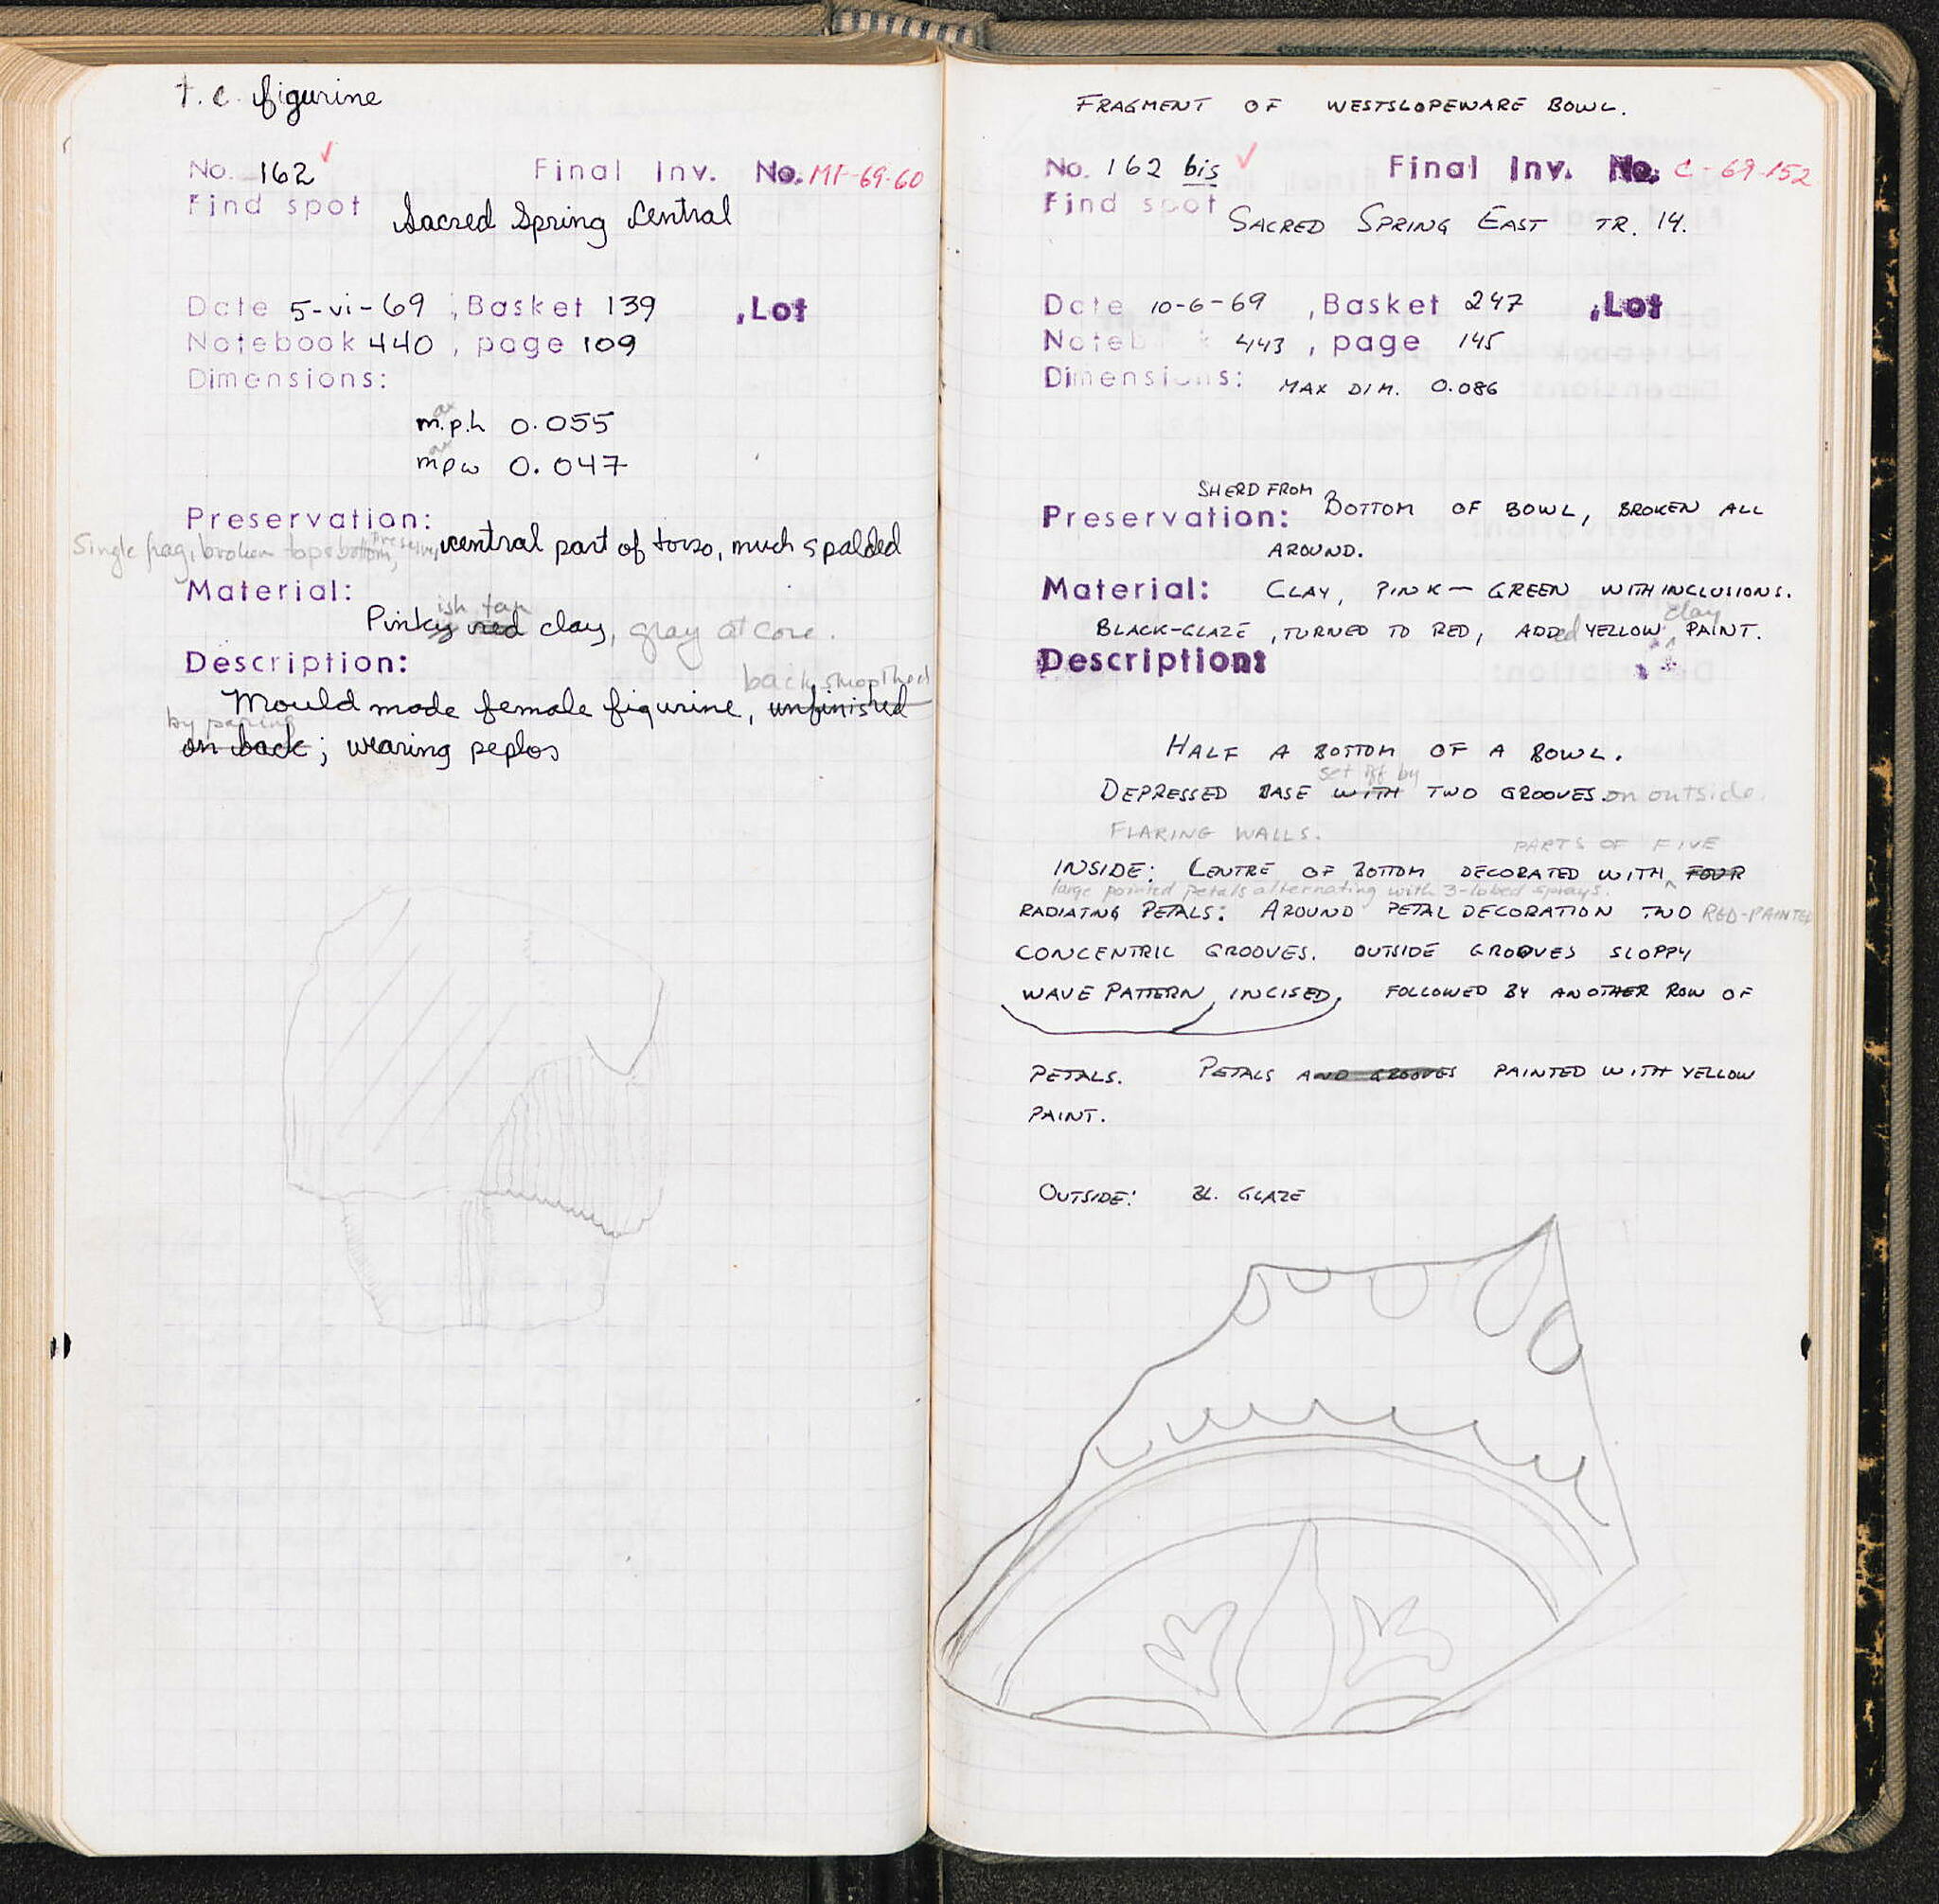 t.c. figurine
No. 162 ✓ Final Inv. No. MF-69-60
Find spot Sacred Spring Central
Date 5-vi-69 , Basket 139 , Lot
Notebook 440 , page 109
Dimensions:
max
m.p.h 0.055
max
mpw 0.047
Preservation:
Single frag, broken top & bottom, preserving central part of torso, much spalded
Material:
ish tan
Pinky red clay, gray at core.
Description:
back smoothed
Mould made female figurine, unfinished
by paring
on back; wearing peplos
FRAGMENT OF WESTSLOPEWARE BOWL.
No. 162 bis ✓ Final Inv. No. C-69-152
Find spot SACRED SPRING EAST TR. 14.
Date 10-6-69 , Basket 247 , Lot
Noteb k 443 , page 145
Dimensions: MAX DIM. 0.086
SHERD FROM
Preservation: BOTTOM OF BOWL, BROKEN ALL
AROUND.
Material: CLAY, PINK - GREEN WITH INCLUSIONS.
clay
BLACK-GLAZE, TURNED TO RED, ADDed YELLOW PAINT.
Description:
HALF A BOTTOM OF A BOWL.
set off by
DEPRESSED BASE WITH TWO GROOVES on outside.
FLARING WALLS.
PARTS OF FIVE
INSIDE: CENTRE OF BOTTOM DECORATED WITH FOUR
large pointed petals alternating with 3-lobed sprays.
RADIATING PETALS: AROUND PETAL DECORATION TWO RED-PAINTED
CONCENTRIC GROOVES. OUTSIDE GROOVES SLOPPY
WAVE PATTERN, INCISED, FOLLOWED BY ANOTHER ROW OF
PETALS. PETALS AND GROOVES PAINTED WITH YELLOW
PAINT.
OUTSIDE: BL. GLAZE